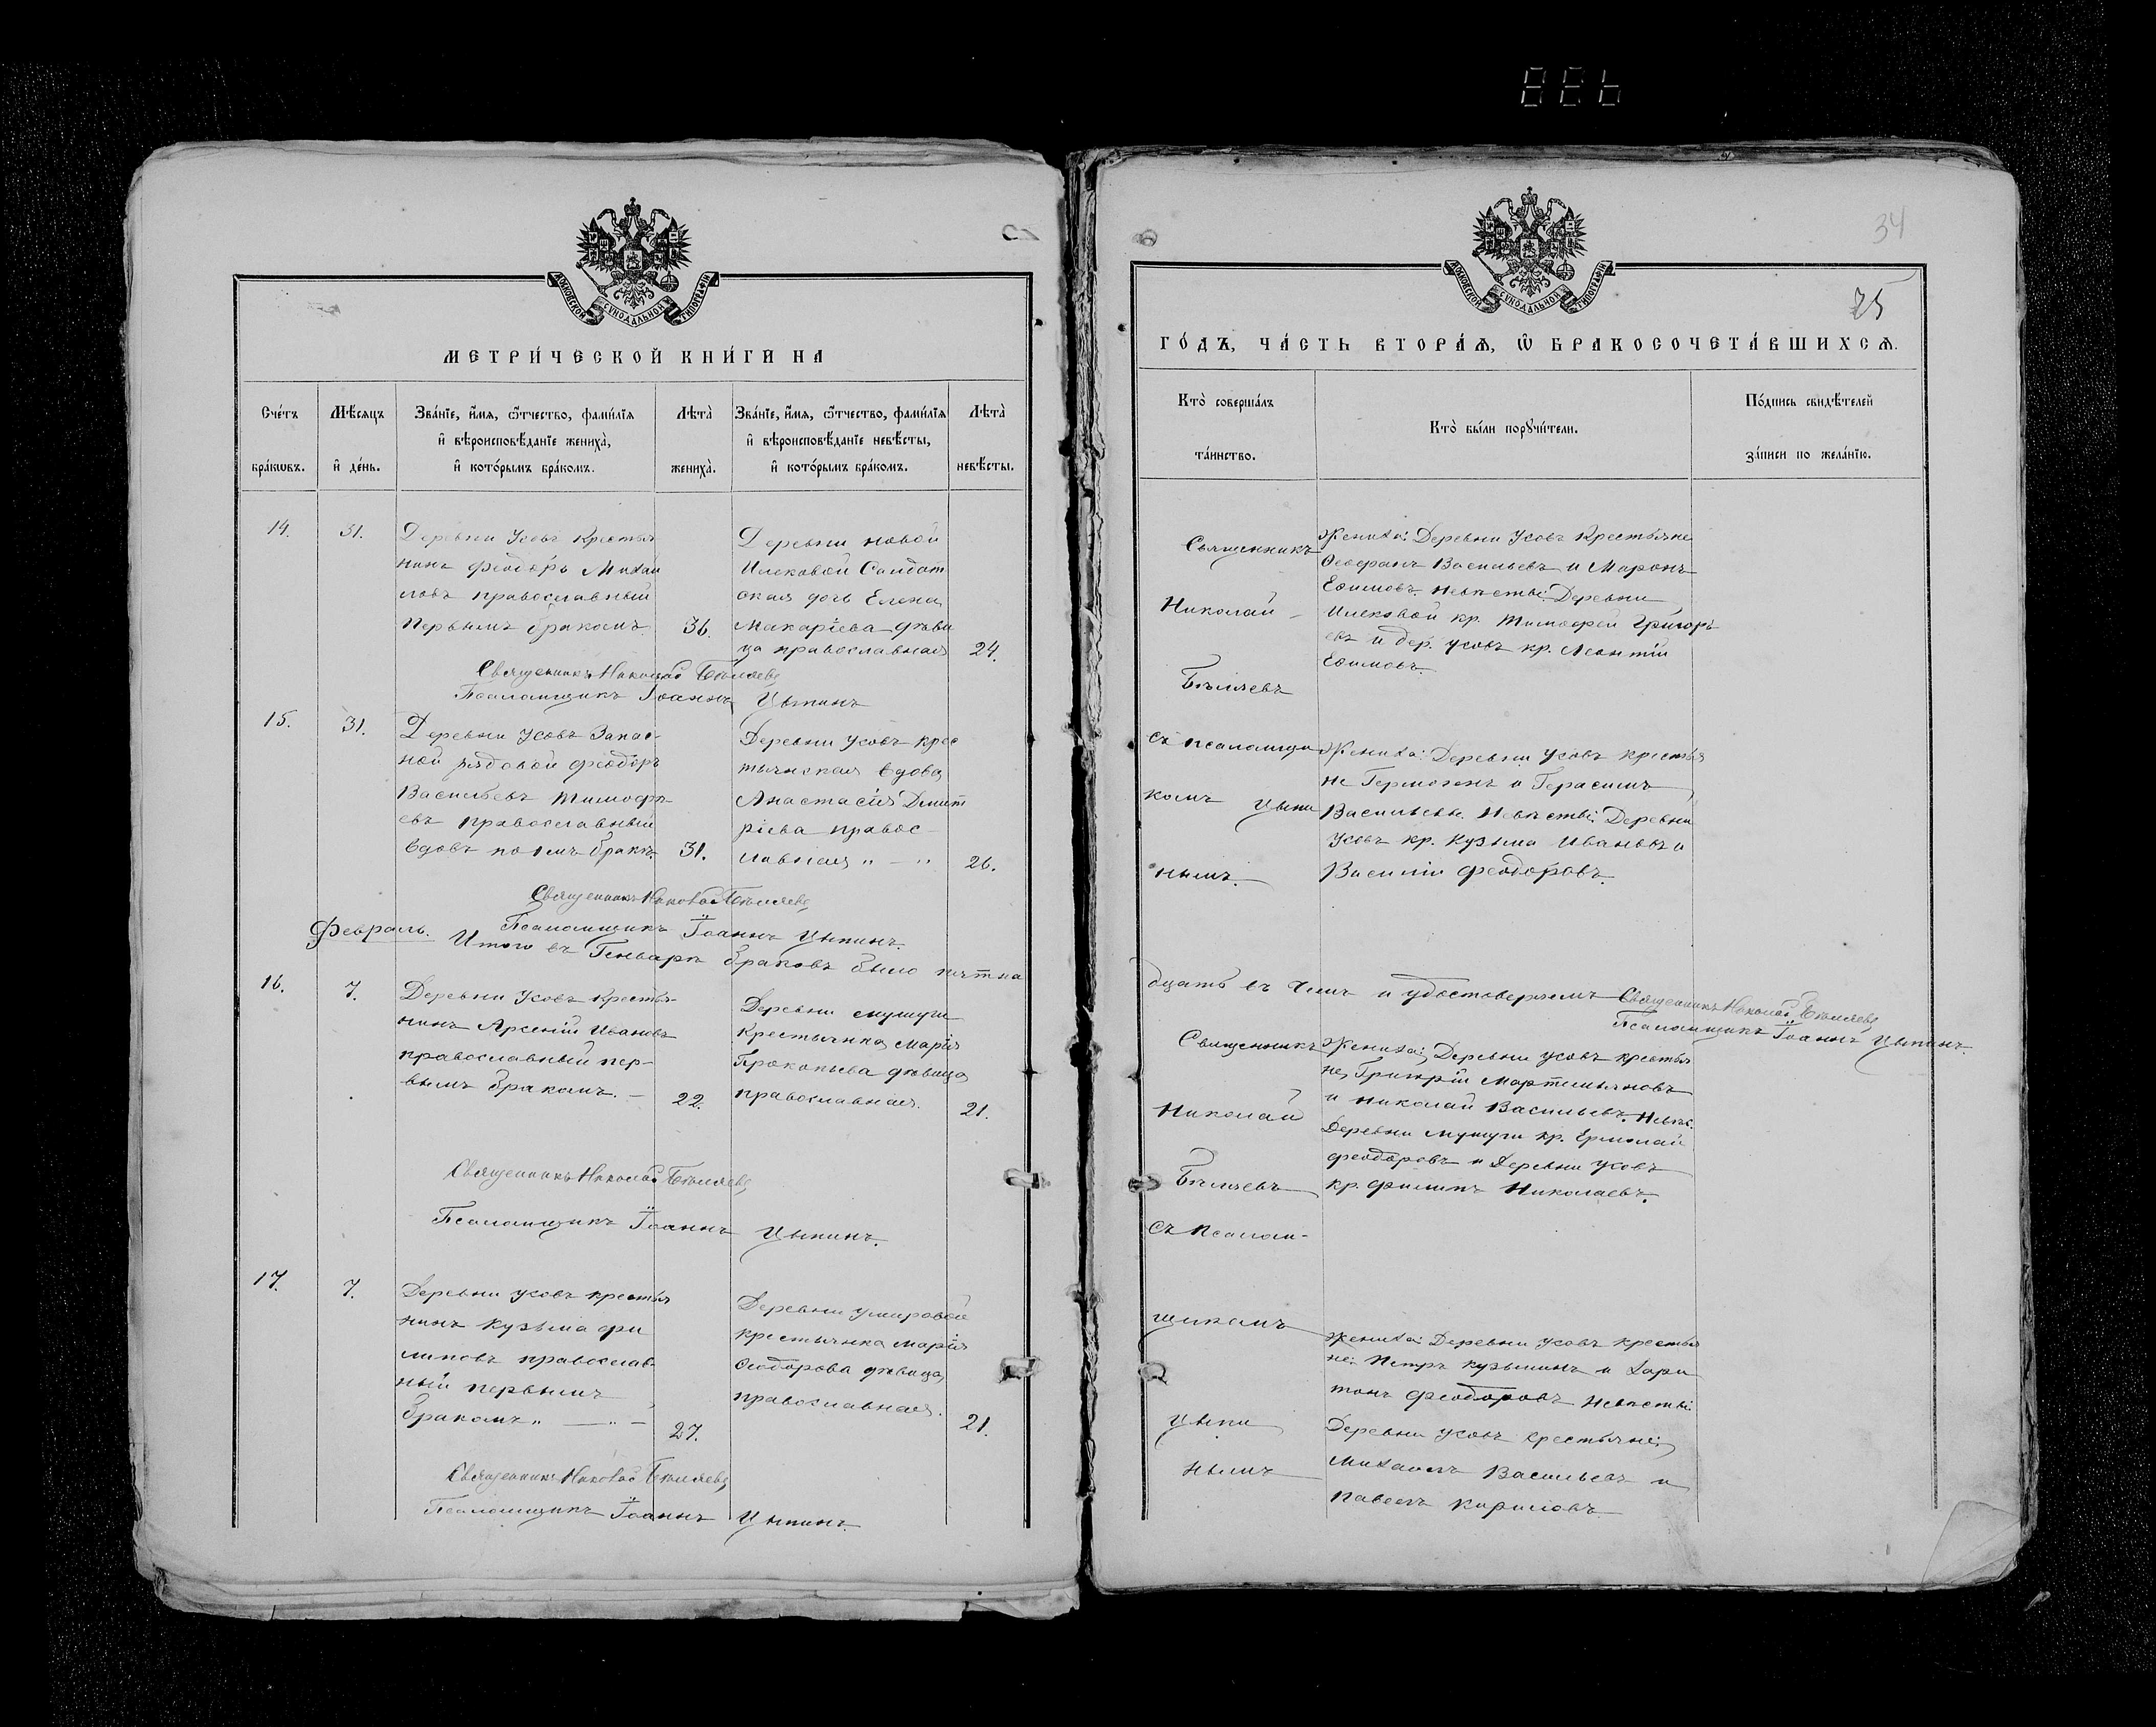 886
34
МОСКОВСКОЙ СѴНОДАЛЬНОЙ ТИПОГРАФІИ
МЕТРИ́ЧЕСКОЙ КНИ́ГИ НА
Сче́тъ бра́кѡвъ.
Мѣ́сяцъ и҆ де́нь.
Зва́нїе, и҆́мя, ѻ҆́тчество, фами́лїя
и҆ вѣроисповѣ́данїе жениха̀,
и҆ кото́рымъ бра́комъ.
Лѣта̀ жениха̀.
Зва́нїе, и҆́мя, ѻ҆́тчество, фами́лїя
и҆ вѣроисповѣ́данїе невѣ́сты,
и҆ кото́рымъ бра́комъ.
Лѣта̀ невѣ́сты.
14.
31.
Деревни Усовъ Крестья
нинъ Феодоръ Михаи
ловъ православный
первымъ бракомъ.
36.
Деревни Новой
Илековой Солдат
ская дочь Елена
Макаріева дѣви
ца православная
24.
Священникъ Николай Бѣляевъ
Псаломщикъ Іоаннъ Цыпинъ
15.
31.
Деревни Усовъ Запас-
ной рядовой Феодоръ
Васильевъ Тимофѣ-
евъ православный
вдовъ по 1мъ бракѣ.
31.
Деревни Усовъ крес
тьянская вдова
Анастасія Дмит
ріева правос-
лавная " — "
26.
Священникъ Николай Бѣляевъ
Псаломщикъ Іоаннъ Цыпинъ.
Итого въ Генварѣ браковъ было пятна
Февраль.
16.
7.
Деревни Усовъ Крестья-
нинъ Арсеній Ивановъ
православный пер-
вымъ бракомъ. —
22.
Деревни Мушуги
Крестьянка Марія
Прокопьева дѣвица
православная.
21.
Священникъ Николай Бѣляевъ
Псаломщикъ Іоаннъ Цыпинъ.
17.
7.
Деревни Усовъ крестья
нинъ Кузьма Фи
липовъ православ-
ный первымъ
бракомъ " — " —
27.
Деревни Умировой
крестьянка Марія
Ѳеодорова дѣвица
православная.
21.
Священникъ Николай Бѣляевъ
Псаломщикъ Іоаннъ Цыпинъ.
МОСКОВСКОЙ СѴНОДАЛЬНОЙ ТИПОГРАФІИ
25
ГО́ДЪ, ЧА́СТЬ ВТОРА́Ѧ, Ѽ БРАКОСОЧЕТА́ВШИХСѦ.
Кто̀ соверша́лъ
та́инство.
Кто̀ бы́ли порꙋчи́тели.
По́дпись свидѣ́телей
за́писи по жела́нїю.
Священникъ
Николай —
Бѣляевъ
съ псаломщи
комъ Цыпи
нымъ.
Жениха: Деревни Усовъ Крестьяне
Ѳеофанъ Васильевъ и Маронъ
Ефимовъ. Невѣсты: Деревни
Илековой кр. Тимофей Григорь
евъ и дер. Усовъ кр. Леонтій
Ефимовъ.
Жениха: Деревни Усовъ крестья
не Гермогенъ и Герасимъ
Васильевы. Невѣсты: Деревни
Усовъ кр. Кузьма Ивановъ и
Василій Феодоровъ.
дцать въ чемъ и удостоверяемъ Священникъ Николай Бѣляевъ
Псаломщикъ Іоаннъ Цыпинъ.
Священникъ
Николай
Бѣляевъ
съ псалом-
щикомъ
Цыпи
нымъ
Жениха: Деревни Усовъ крестья
не, Григорій Мартемьяновъ
и Николай Васильевъ. Невѣс.
Деревни Мушуги кр. Ермолай
Феодоровъ и Деревни Усовъ
кр. Филипъ Николаевъ.
Жениха: Деревни Усовъ крестья
не: Петръ Кузьминъ и Хари
тонъ Феодоровъ Невѣсты:
Деревни Усовъ Крестьяне:
Михаилъ Васильевъ и
Павелъ Кириловъ